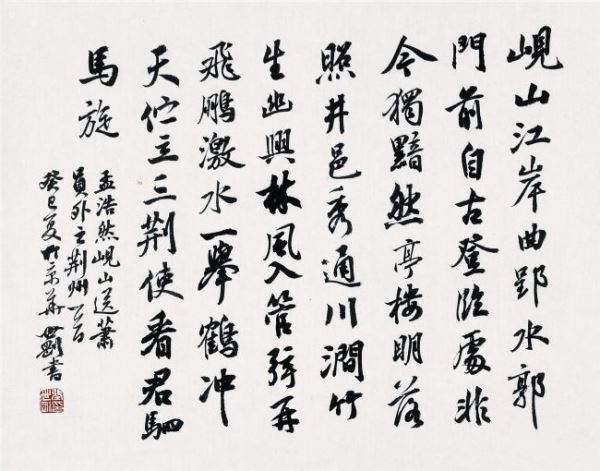 峴山江岸曲郢水郭
門前自古登臨處非
今獨黯然亭楼明落
照井邑秀通川澗竹
生幽興林風入管弦再
飛鵬激水一舉鶴冲
天佇立三荆使看君駟
馬旋
孟浩然峴山送蕭
員外之荆州一首
癸巳夏於京華世書